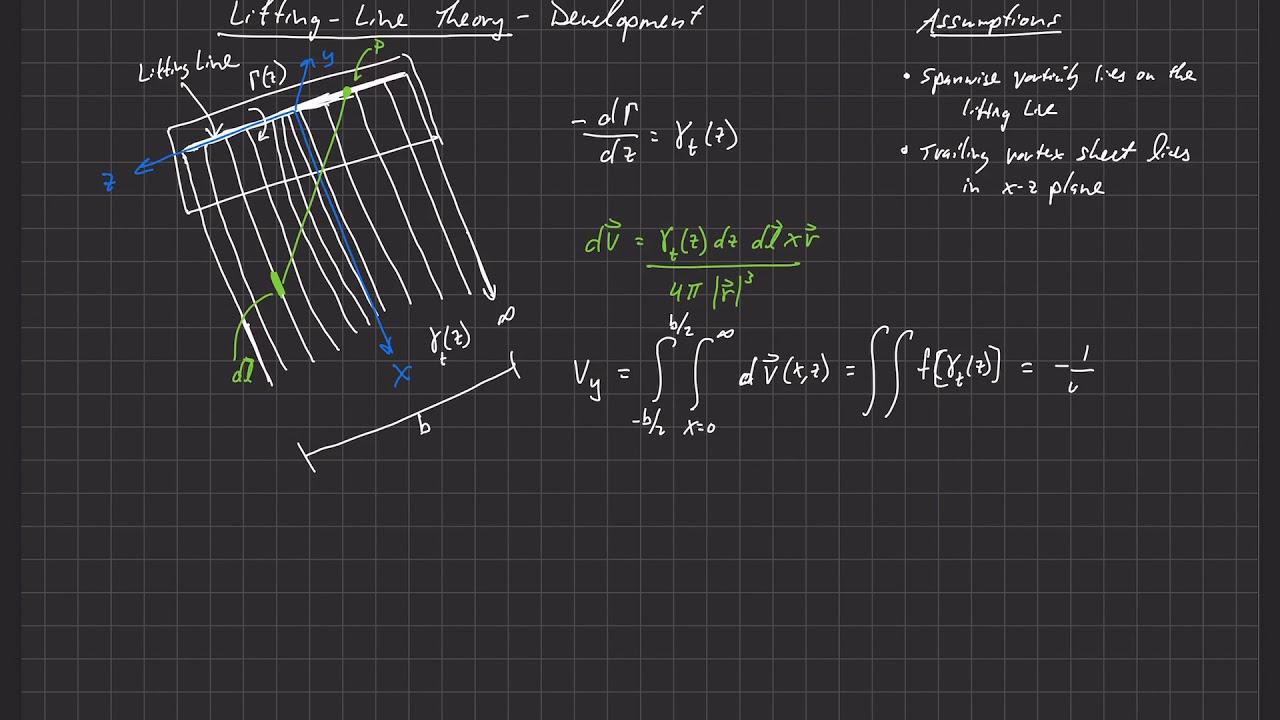 Lifting-Line Theory - Development
Assumptions
• Spanwise vorticity lies on the
lifting line
• Trailing vortex sheet lies
in x-z plane
Lifting Line
Γ(z)
y
P
z
dl⃗
γ_t(z)
∞
x
b
-dΓ/dz = γ_t(z)
dV⃗ = γ_t(z) dz dl⃗ x r⃗ / 4π |r⃗|³
V_y = ∫_{-b/2}^{b/2} ∫_{x=0}^{∞} dV⃗(x,z) = ∫∫ f[γ_t(z)] = -1/